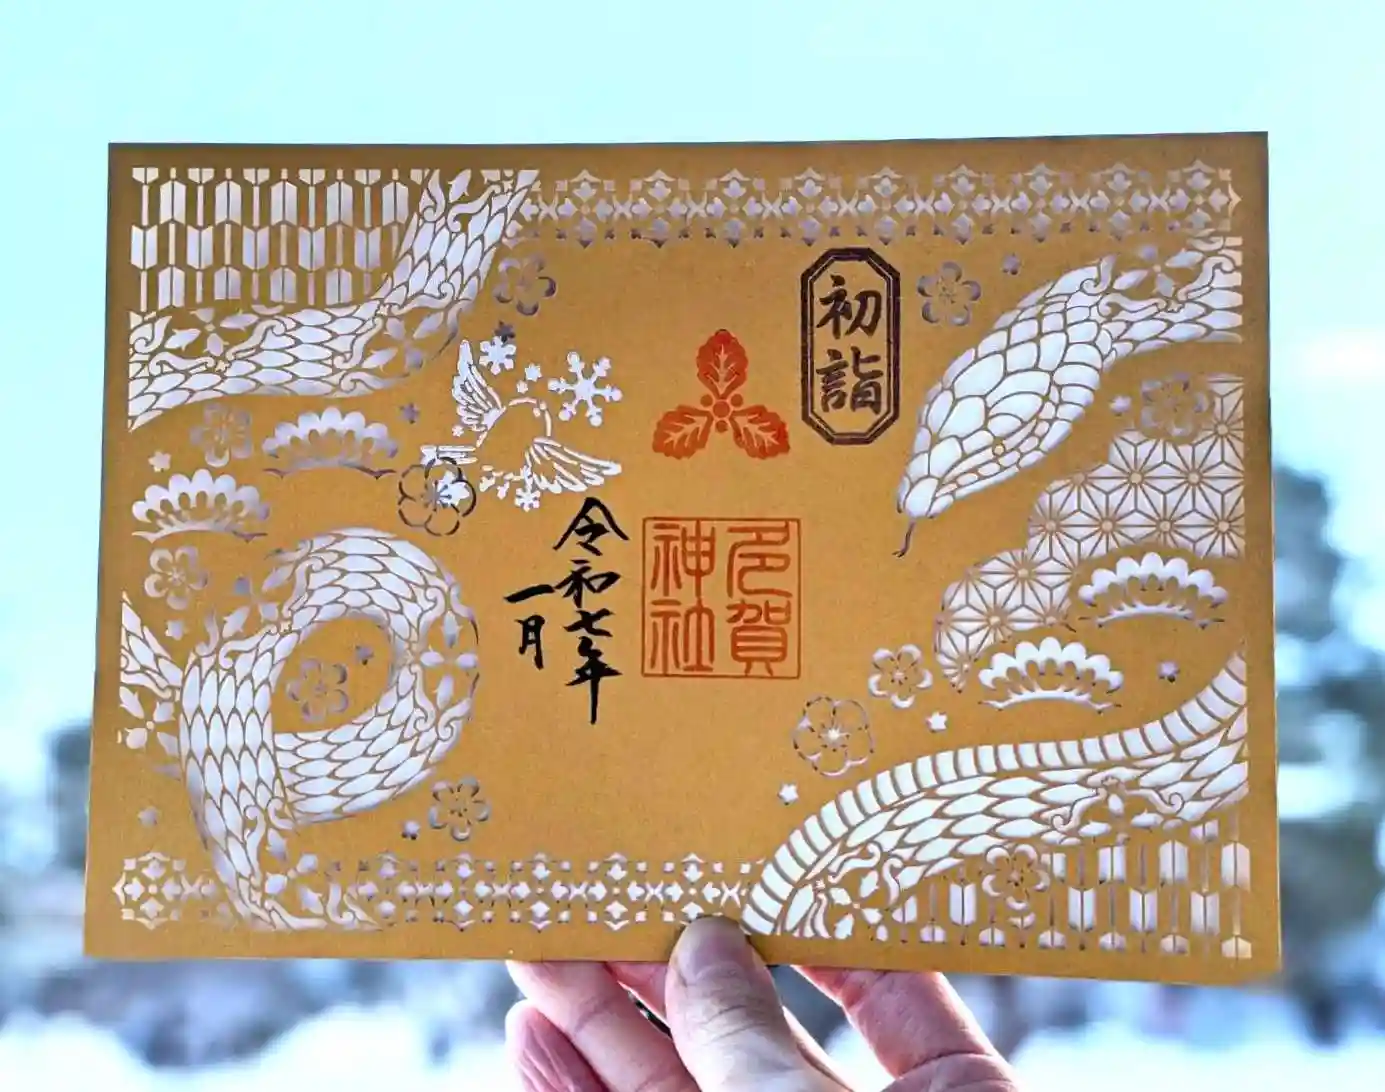 初詣
多賀
神社
令和七年
一月